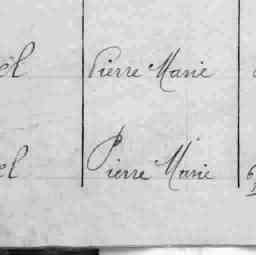 el Pierre Marie
el Pierre Marie